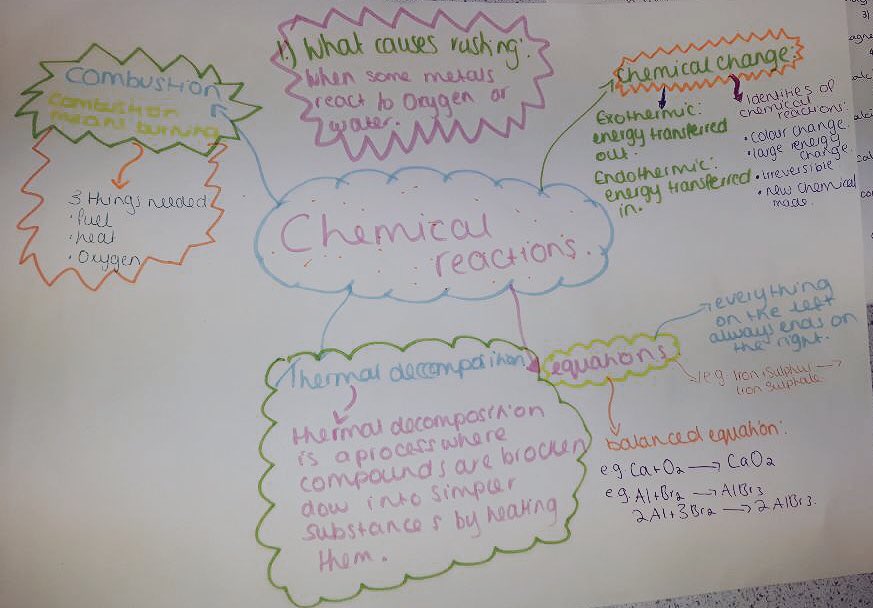 Combustion
Combustion
means burning
3 things needed
• fuel
• heat
• Oxygen
1.) What causes rusting:
When some metals
react to Oxygen or
water.
Chemical change:
Exothermic:
energy transferred
out.
Endothermic:
energy transferred
in.
identities of
chemical
reactions:
• colour change.
• large energy
change.
• irreversible
• new chemical
made.
Chemical
reactions.
Thermal decomposition
thermal decomposition
is a process where
compounds are brocken
dow into simpler
substances by heating
them.
equations
everything
on the left
always ends on
the right.
e.g. Iron + Sulphur →
Iron Sulphate
balanced equation:
eg Ca+O₂ → CaO₂
eg Al+Br₂ → AlBr₃
2Al+3Br₂ → 2AlBr₃.
3)